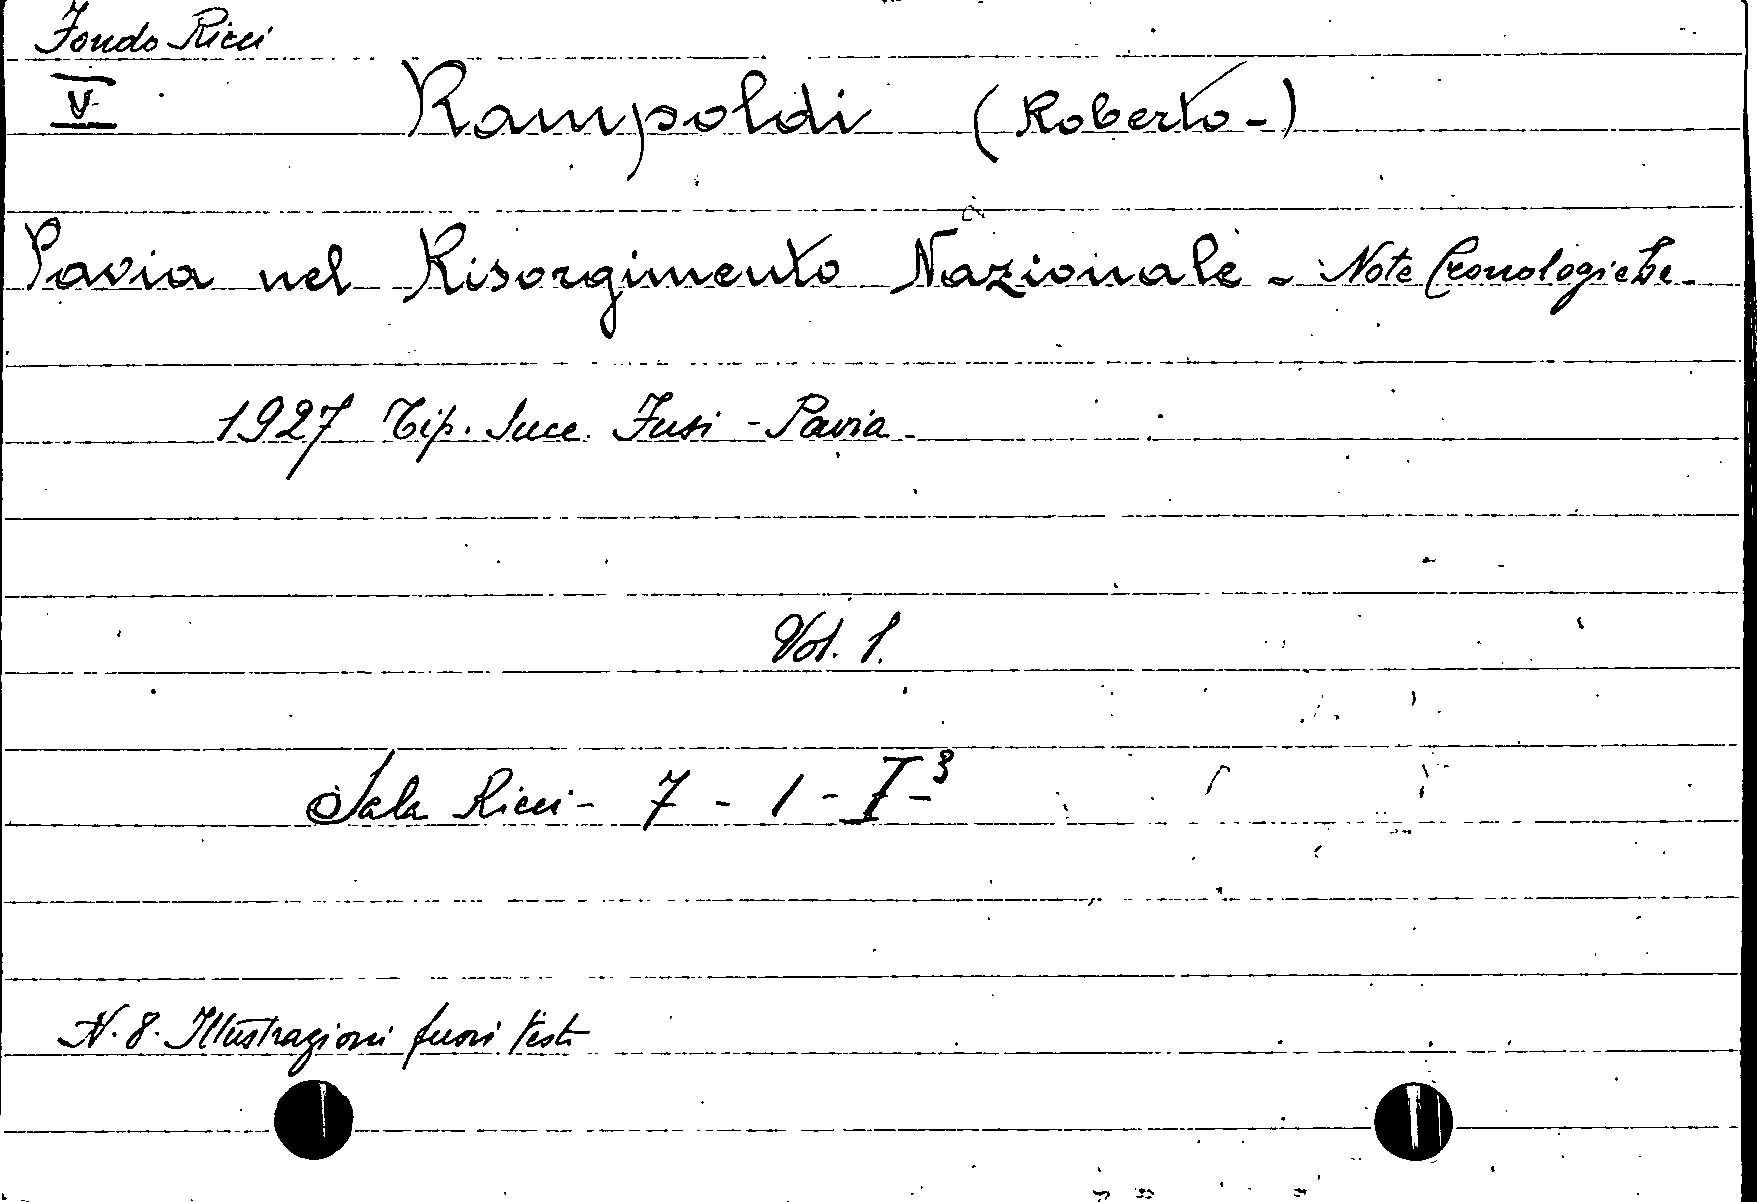 Fondo Ricci
V Rampoldi (Roberto-)
Pavia nel Risorgimento Nazionale - Note Cronologiche-
1927 Tip. Succ. Fusi - Pavia-
Vol. 1.
Sala Ricci - 7 - 1 - I-3
N. 8. Illustrazioni fuori testo